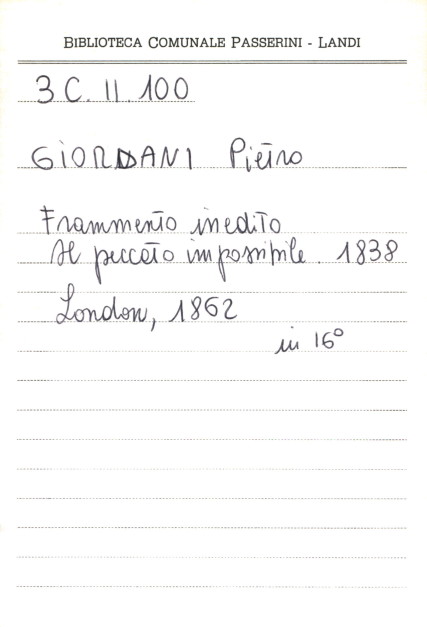 BIBLIOTECA COMUNALE PASSERINI - LANDI
3 C. II. 100
GIORDANI Pietro
Frammento inedito
Il peccato impossibile. 1838
London, 1862
in 16°